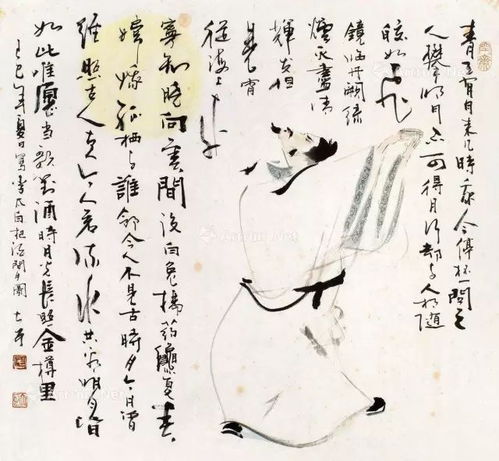 青天有月来几時我今停杯一問之
人攀明月不可得月行却与人相随
皎如飞
鏡临丹闕绿
煙灭盡清
輝发但
見宵
從海上来
寧知晓向雲間没白兔搗药秋復春
嫦娥孤栖与誰邻今人不見古時月今月曾
经照古人古人今人若流水共看明月皆
如此唯愿当歌对酒時月光长照金樽里
己巳年夏日寫李太白把酒问月圖